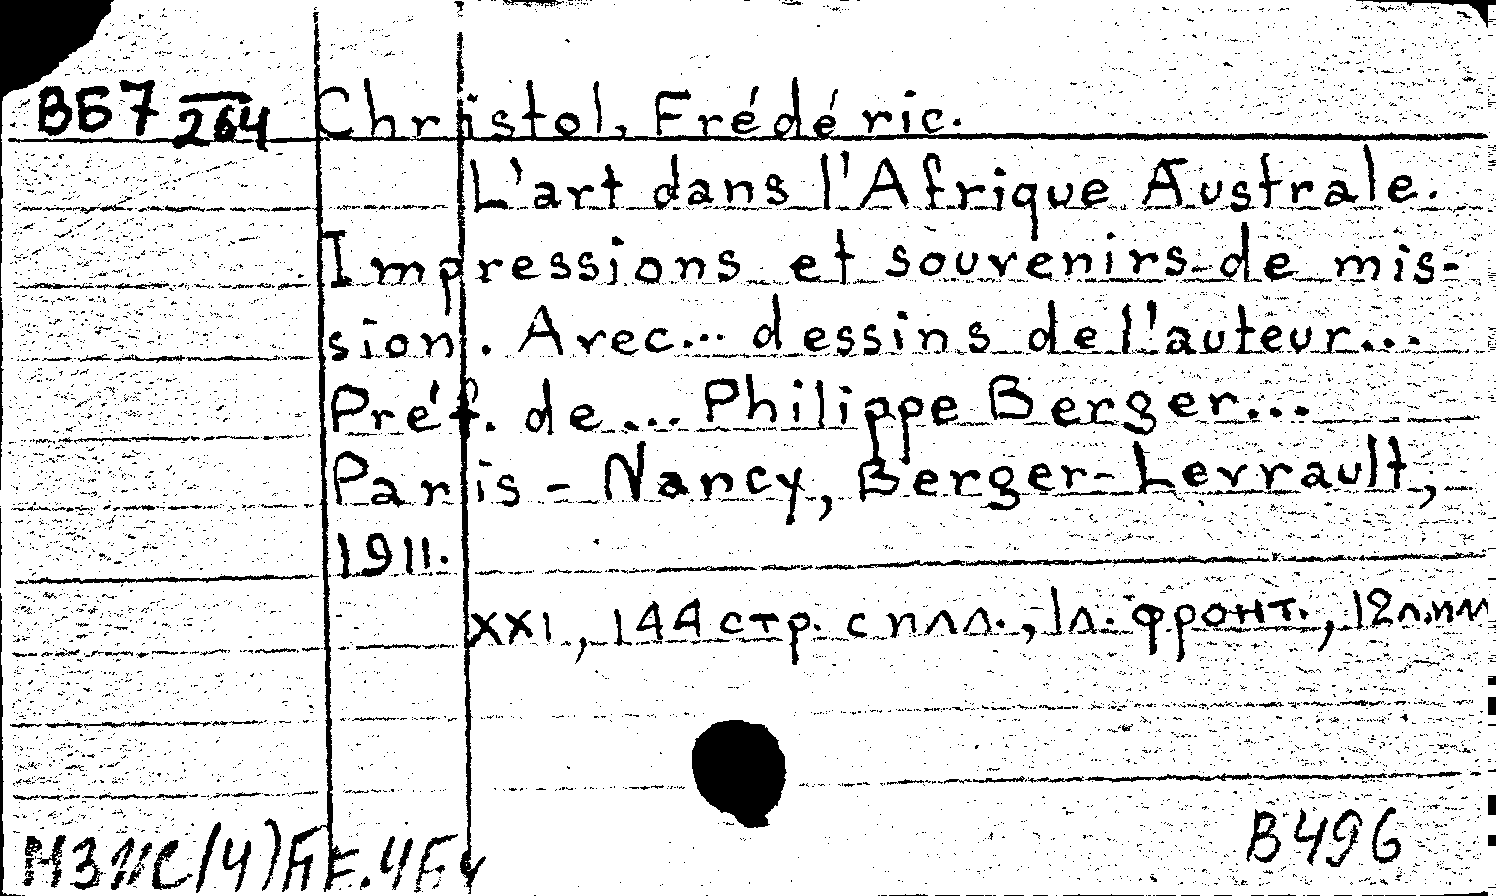 ВБ7 264 Christol, Frédéric.
L'art dans l'Afrique Australe.
Impressions et souvenirs de mis-
sion. Avec... dessins de l'auteur...
Préf. de... Philippe Berger...
Paris - Nancy, Berger-Levrault,
1911.
XXI, 144 стр. с илл., 1 л. фронт., 12 л. илл
В496